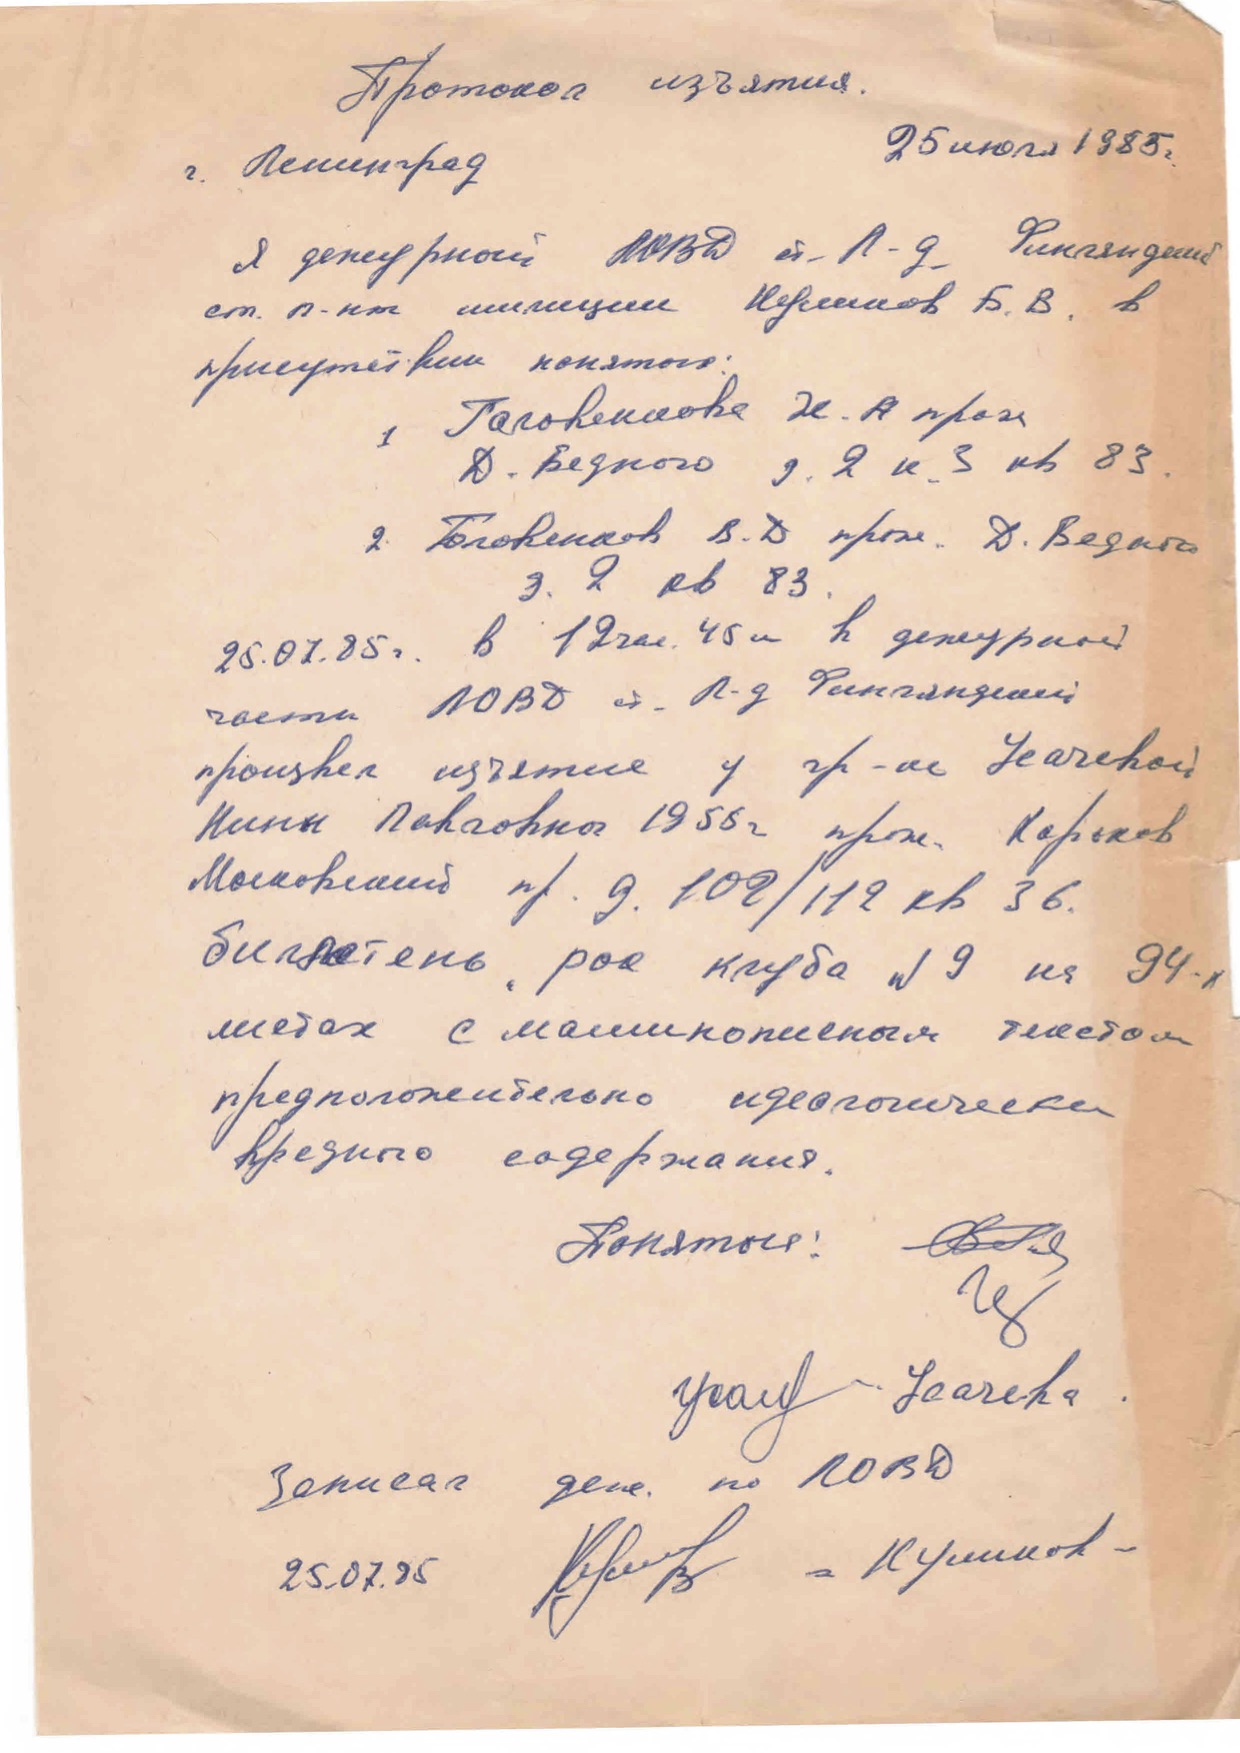 Протокол изъятия.
г. Ленинград
25 июля 1985г.
Я дежурный ЛОВД ст. Л-д Финляндский
ст. л-нт милиции Куликов Б.В. в
присутствии понятых:
1 Головенкова Н. А прож
Д. Бедного д. 2 к. 3 кв 83.
2. Головенков В.Д прож. Д. Бедного
д. 2 кв 83.
25.07.85г. в 12 час. 45 м в дежурной
части ЛОВД ст. Л-д Финляндский
произвел изъятие у гр-ки Усачевой
Нины Павловны 1955г прож. Харьков
Московский пр. д. 102/112 кв 36.
бюллетень „рок клуба N 9 на 94-х
листах с машинописным текстом
предположительно идеологически
вредного содержания.
Понятые:
Усачева.
Записал деж. по ЛОВД
25.07.85 - Куликов -